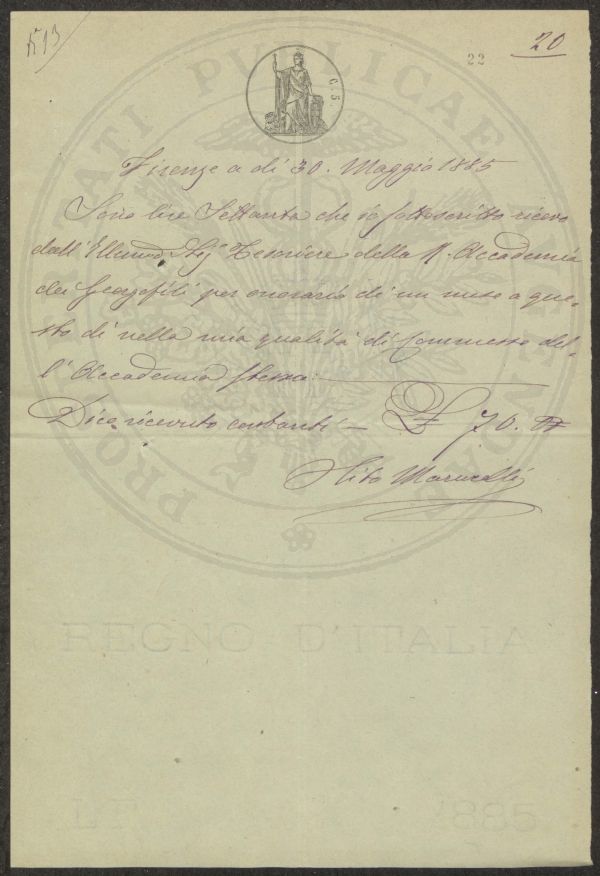 N 13
22
20
C. 5.
Firenze a dì 30. Maggio 1885
Sono lire Settanta che io sottoscritto ricevo
dall' Sigr Tesoriere della R. Accademia
dei Georgofili per onorario di un mese a que-
sto dì nella mia qualità di Commesso del-
l' Accademia stessa:
Dico ricevuto contanti — £ 70.
Marucelli
PROSPERITATI PUBLICAE AUGENDAE
REGNO D'ITALIA
1885